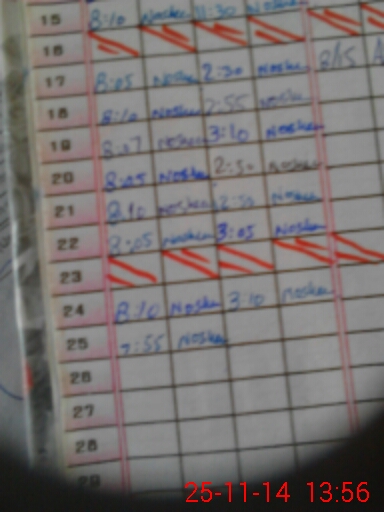 15 8:10 Noshee 11:30 Noshee
16
17 8:05 Noshee 2:30 Noshee 8/15
18 8:10 Noshee 2:55 Noshee
19 8:07 Noshee 3:10 Noshee
20 8:05 Noshee 2:50 Noshee
21 8:10 Noshee 2:50 Noshee
22 8:05 Noshee 3:05 Noshee
23
24 8:10 Noshee 3:10 Noshee
25 7:55 Noshee
26
27
28
29
25-11-14 13:56